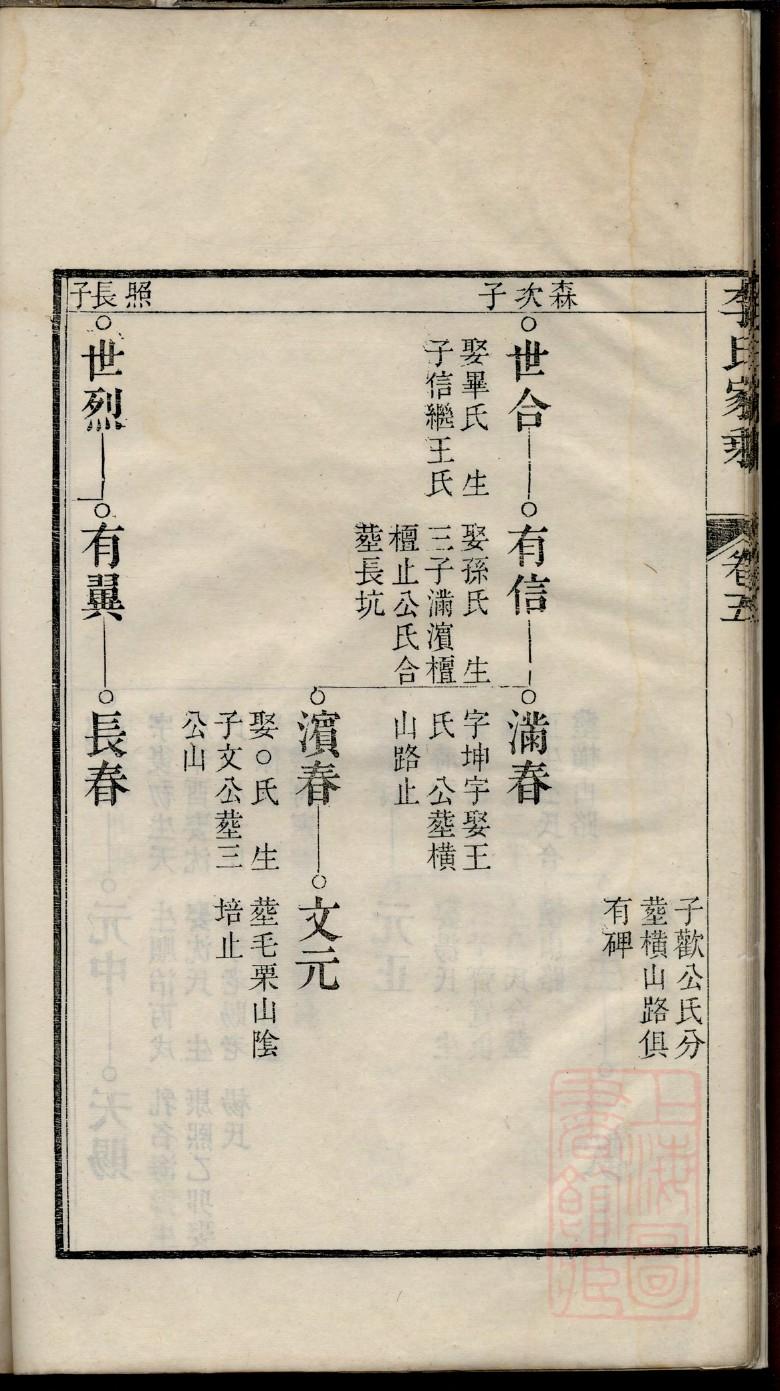 李氏家乘
卷五
子歡公氏分
塟橫山路俱
有碑
森次子
世合
娶畢氏 生
子信繼王氏
有信
娶孫氏 生
三子滿濵檀
檀止公氏合
塟長坑
滿春
字坤宇娶王
氏 公塟橫
山路止
濵春
娶○氏 生
子文公塟三
公山
文元
塟毛栗山陰
培止
照長子
世烈
有翼
長春
上海圖
書館藏